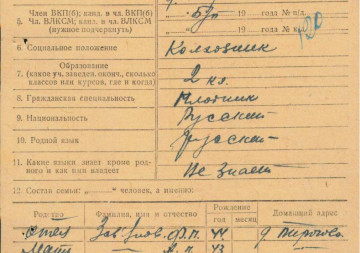 Член ВКП(б); канд. в чл. ВКП(б) — года № п/б.
5. Член ВЛКСМ; канд. в чл. ВЛКСМ б/п — года № к/б.
(нужное подчеркнуть) 120
6. Социальное положение Колхозник
7. Образование
(какое уч. заведен. оконч., сколько классов или курсов, где и когда) 2 кл.
8. Гражданская специальность Плотник
9. Национальность Русский
10. Родной язык Русский
11. Какие языки знает кроме родного и как ими владеет Не знает
12. Состав семьи: „ “ человек, а именно:
Родство Фамилия, имя и отчество Рождение год месяц Домашний адрес
отец Ф.П. 44 д.
Мать А.П. 43